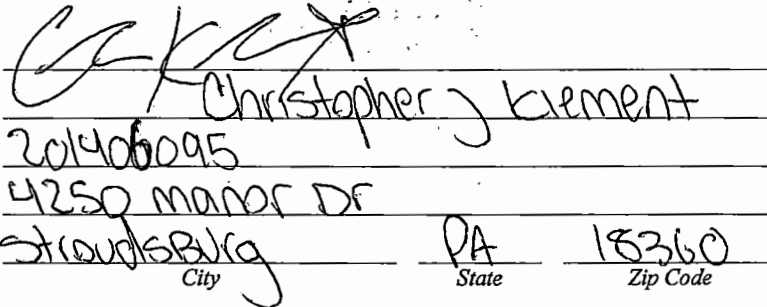 Christopher J Klement
201406095
4250 Manor Dr
StroudsBurg PA 18360
City State Zip Code